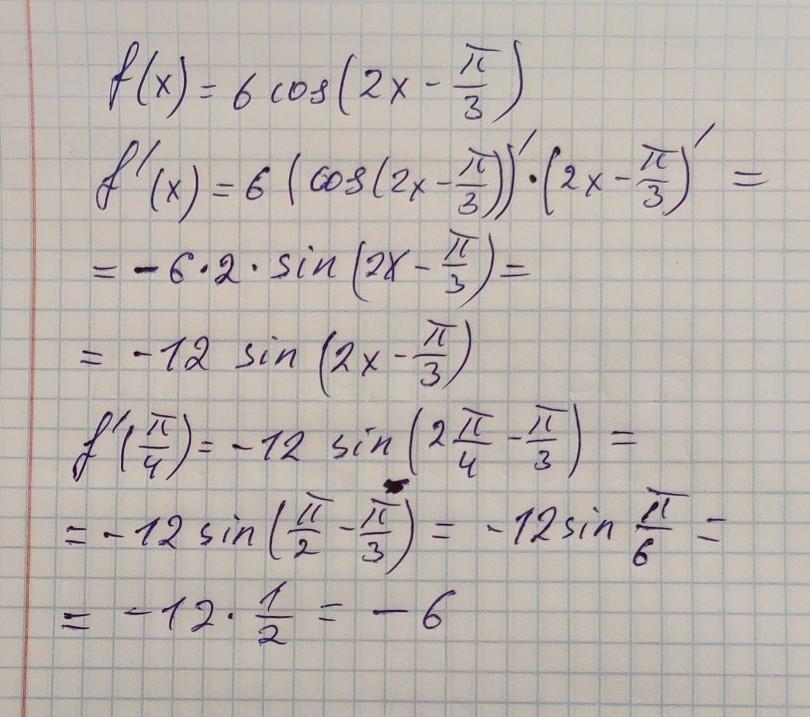 f(x) = 6 cos(2x - π/3)
f'(x) = 6 (cos(2x - π/3))' · (2x - π/3)' =
= - 6 · 2 · sin (2x - π/3) =
= -12 sin (2x - π/3)
f'(π/4) = -12 sin (2π/4 - π/3) =
= -12 sin (π/2 - π/3) = -12 sin π/6 =
= -12 · 1/2 = - 6